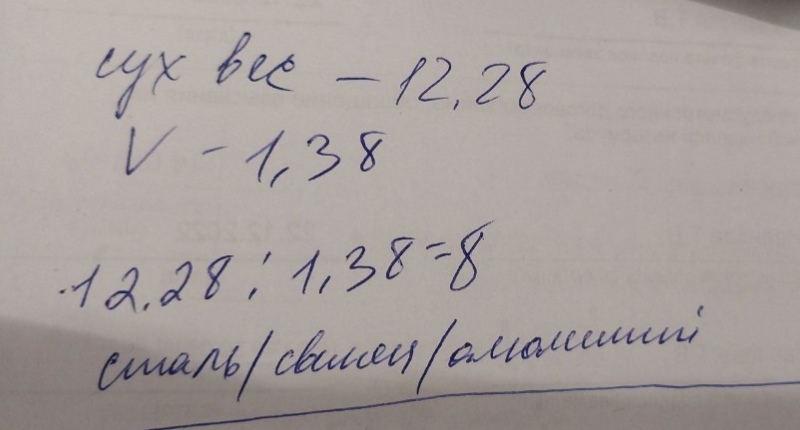 сух вес – 12,28
V – 1,38
12.28 : 1,38 = 8
сталь/свинец/алюминий